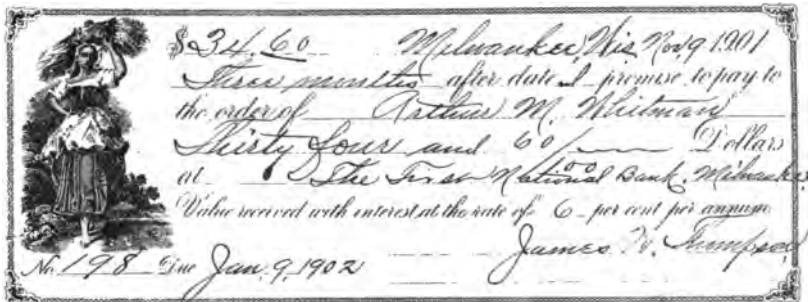 $34.60 Milwaukee, Wis Nov. 9 1901
Three months after date I promise to pay to
the order of Arthur M. Whitman
Thirty four and 60/100 Dollars
at The First National Bank, Milwaukee
Value received with interest at the rate of 6 per cent per annum
James
No. 198 Due Jan. 9, 1902